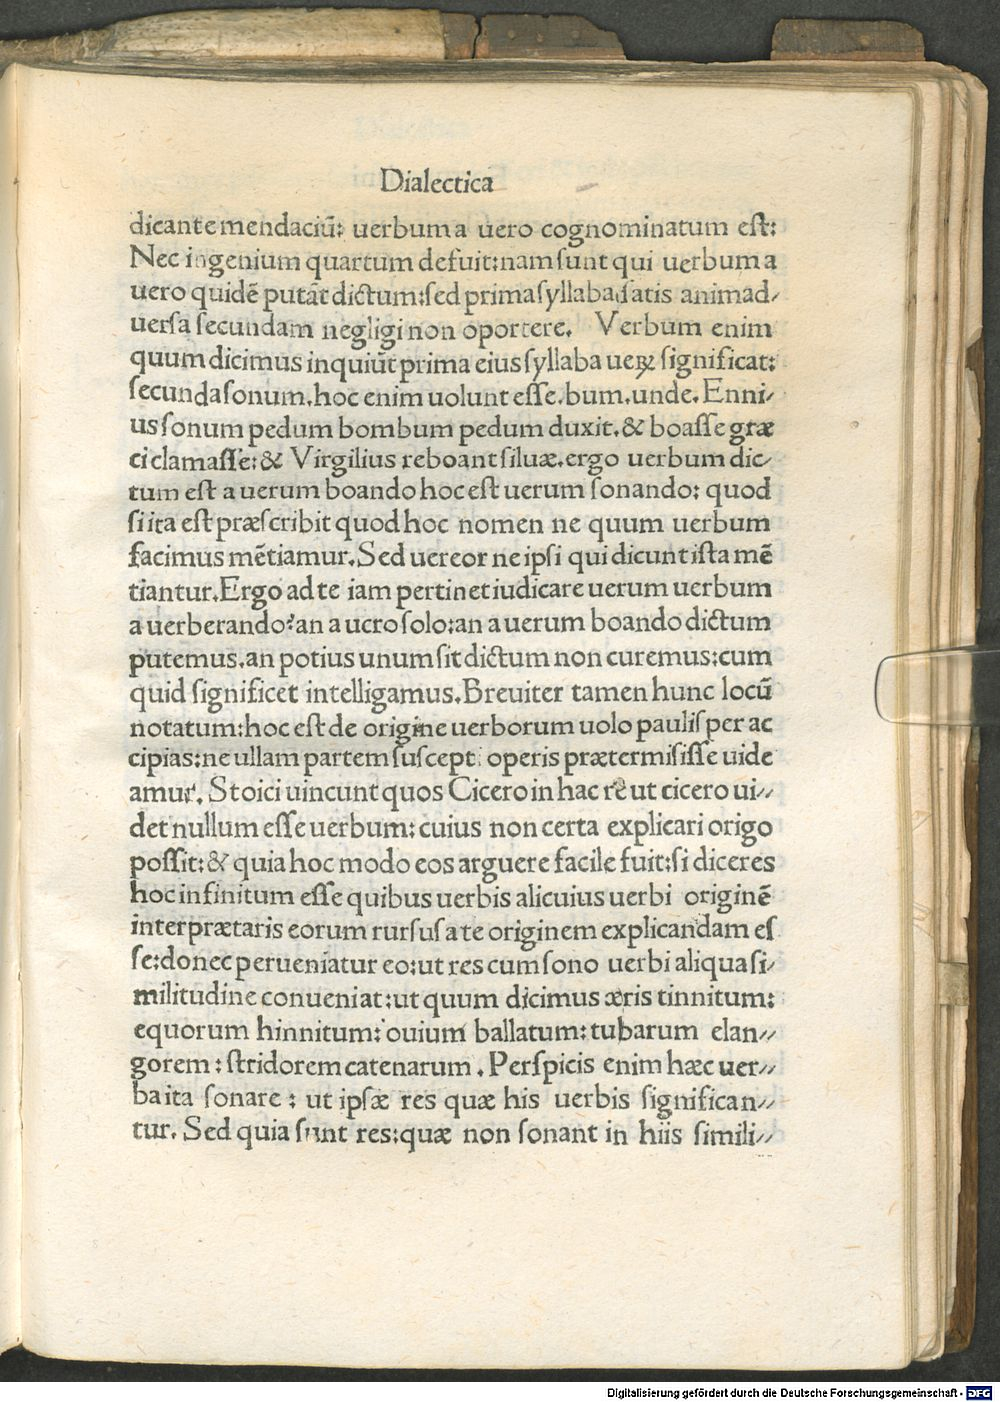 Dialectica
dicante mendaciũ: uerbum a uero cognominatum eſt:
Nec ingenium quartum defuit:nam ſunt qui uerbum a
uero quidē putāt dictum:ſed prima ſyllaba ſatis animad/
uerſa ſecundam negligi non oportere. Verbum enim
quum dicimus inquiūt prima eius ſyllaba ueꝝ ſignificat:
ſecunda ſonum.hoc enim uolunt eſſe.bum.unde.Enni/
us ſonum pedum bombum pedum duxit.& boaſſe græ
ci clamaſſe:& Virgilius reboant ſiluæ.ergo uerbum dic/
tum eſt a uerum boando hoc eſt uerum ſonando: quod
ſi ita eſt præſcribit quod hoc nomen ne quum uerbum
facimus mētiamur.Sed uereor ne ipſi qui dicunt iſta mē
tiantur.Ergo ad te iam pertinet iudicare uerum uerbum
a uerberando?an a uero ſolo:an a uerum boando dictum
putemus.an potius unum ſit dictum non curemus:cum
quid ſignificet intelligamus.Breuiter tamen hunc locū
notatum:hoc eſt de origine uerborum uolo pauliſper ac
cipias:ne ullam partem ſuſcepti operis prætermiſiſſe uide
amur. Stoici uincunt quos Cicero in hac rē ut cicero ui//
det nullum eſſe uerbum: cuius non certa explicari origo
poſſit:& quia hoc modo eos arguere facile fuit:ſi diceres
hoc infinitum eſſe quibus uerbis alicuius uerbi originē
interprætaris eorum rurſus a te originem explicandam eſ
ſe:donec perueniatur eo:ut res cum ſono uerbi aliqua ſi/
militudine conueniat:ut quum dicimus æris tinnitum:
equorum hinnitum: ouium ballatum: tubarum elan//
gorem : ſtridorem catenarum . Perſpicis enim hæc uer//
ba ita ſonare : ut ipſæ res quæ his uerbis ſignifican//
tur. Sed quia ſunt res:quæ non ſonant in hiis ſimili//
Digitalisierung gefördert durch die Deutsche Forschungsgemeinschaft - DFG